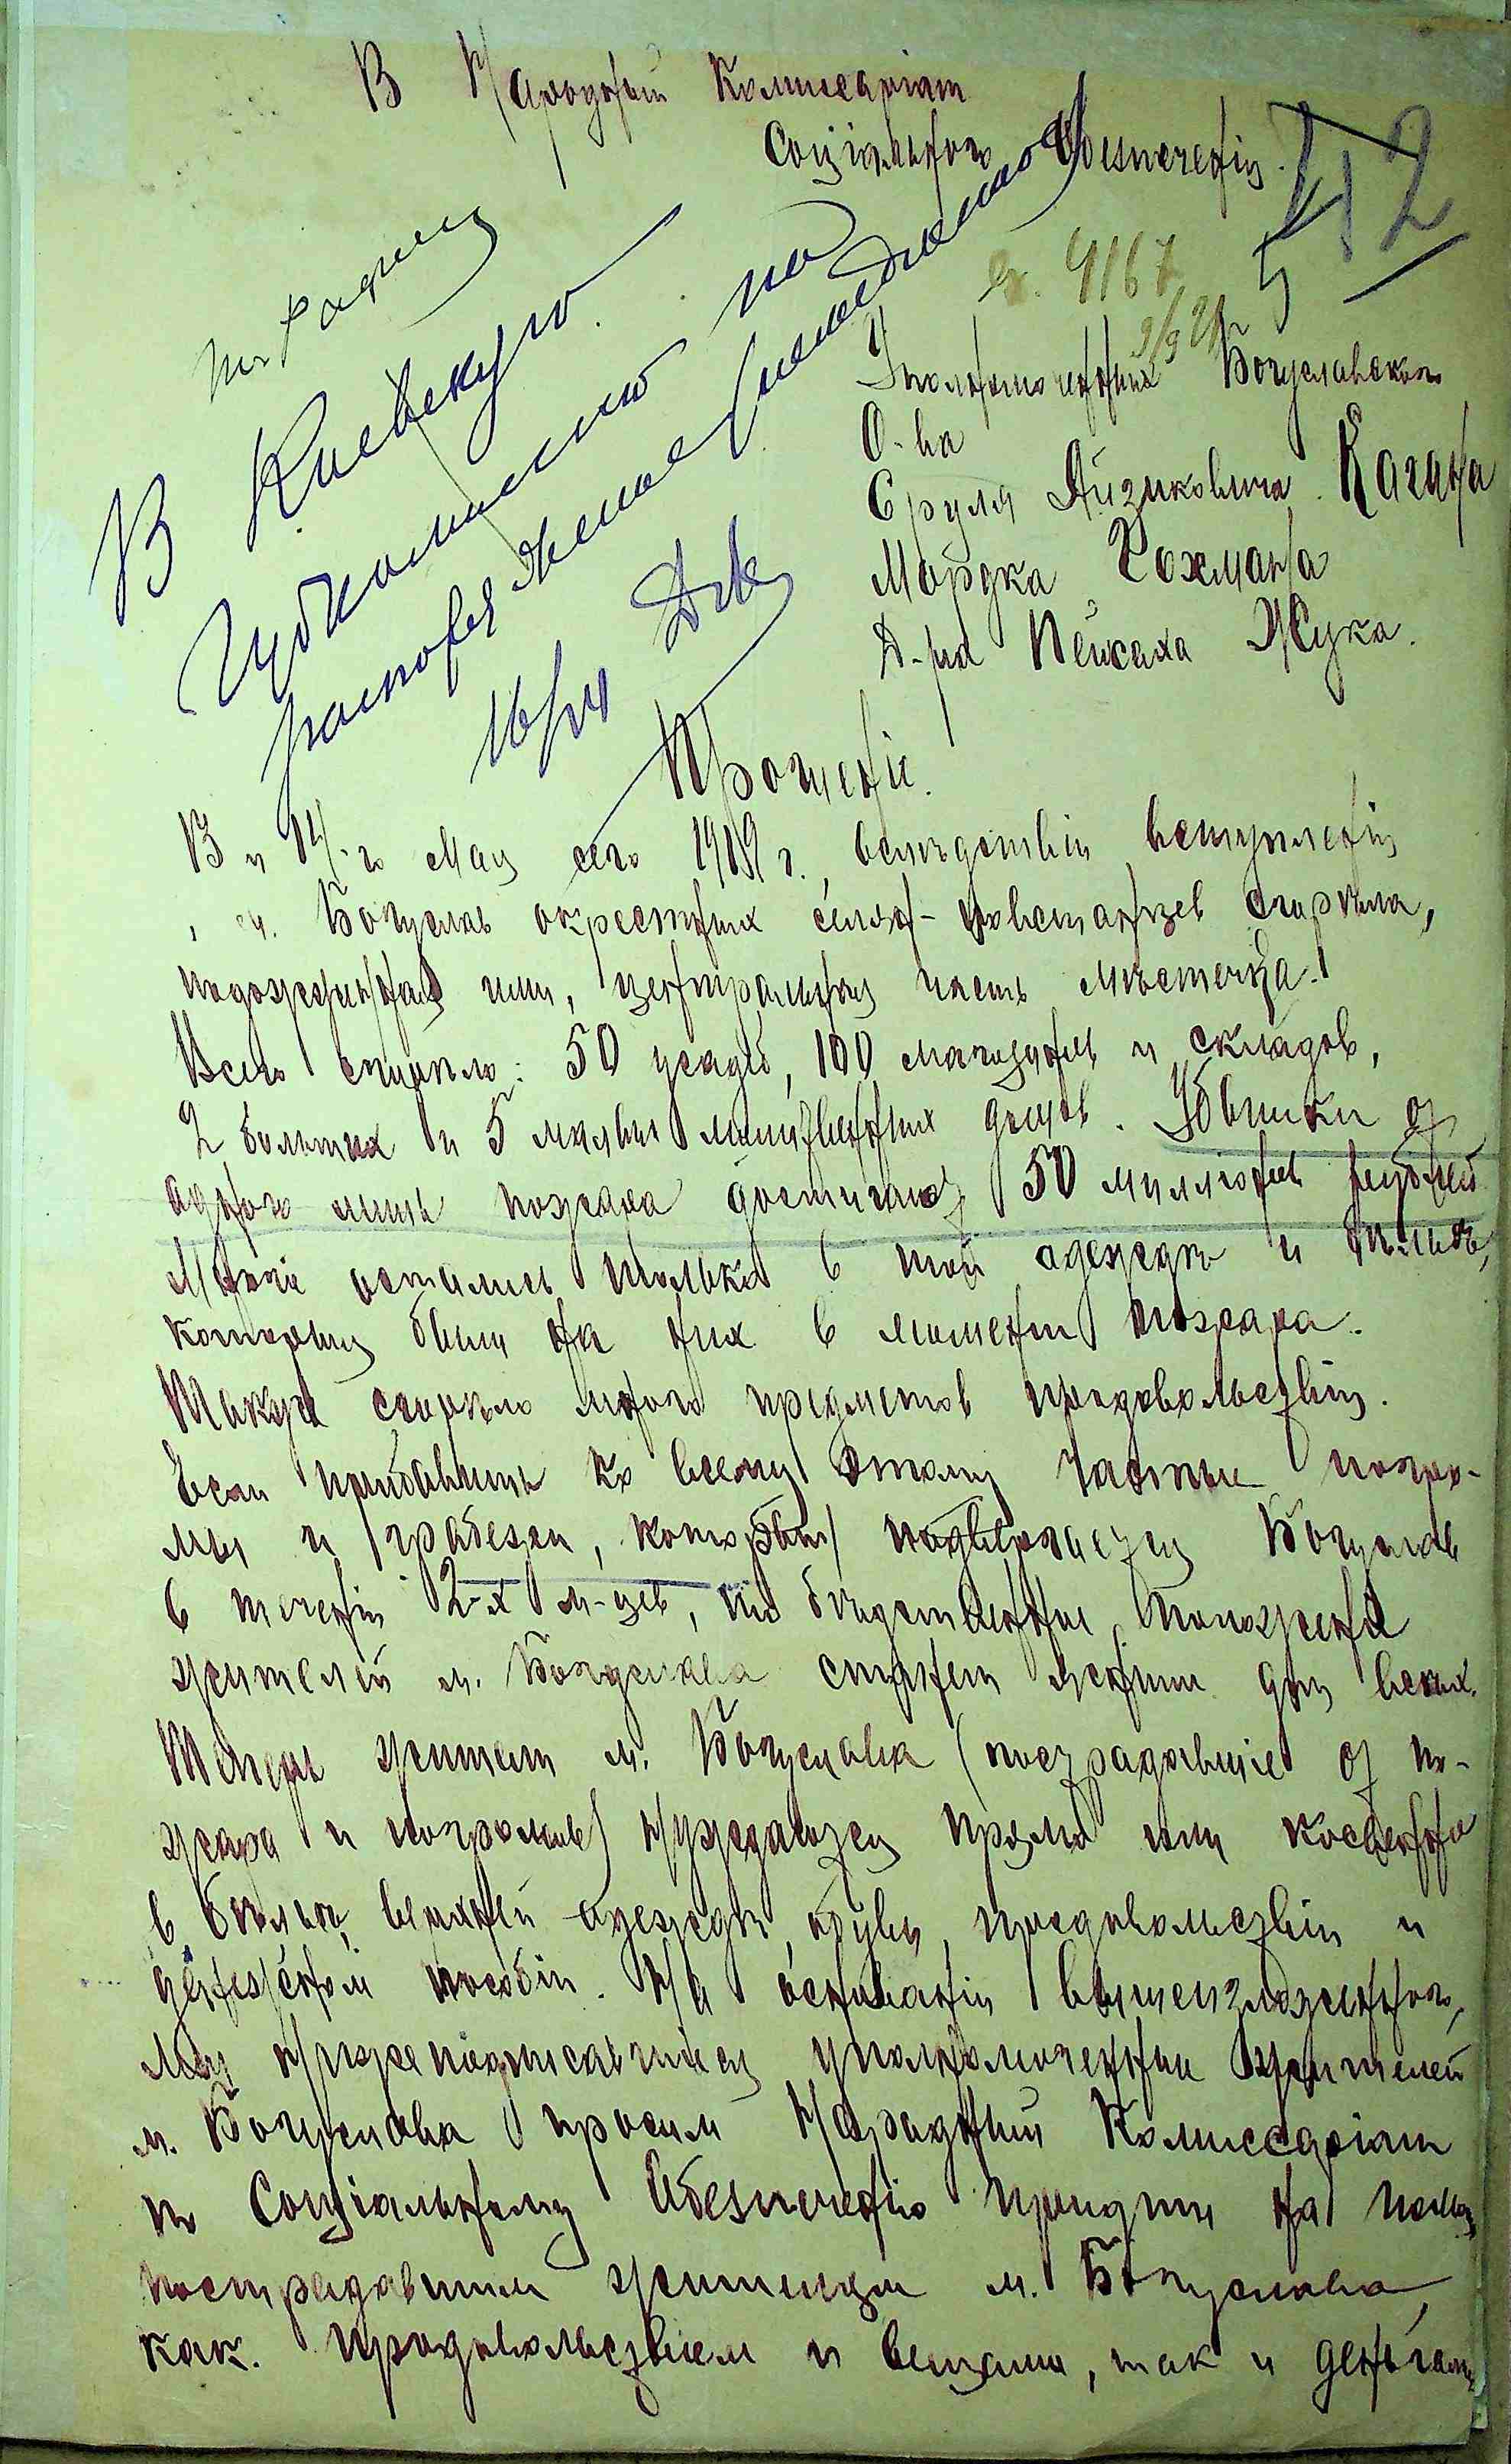 В Народный Комиссаріат
Соціальнаго Обезпеченія.
12
4167
9/5
В Киевскую
Губкомиссию по
Уполномоченных Богуславскаго
О-ва
Сруля Айзиковича Кагана
Мордка Рохмана
Д-ра Пейсаха Жука.
Прошеніе.
В м. 14-го Мая сего 1919 г. вслѣдствіи вступленія
м. Богуслав окрестных селян-повстанцев сгорѣла,
подожженная ими, центральная часть мѣстечка.
Всего сгорѣло: 50 усадьб, 100 магазинов и складов,
2 больших и 5 малых молитвенных домов. Убытки от
одного лишь пожара достигают 50 милліонов рублей
Многіе остались только в той одеждѣ и бѣльѣ,
которыя были на них в момент пожара.
Также сгорѣло много предметов продовольствія.
Если прибавить ко всему этому частые погро-
мы и грабежи, которым подвергается Богуслав
в теченіи 2-х м-цев, то бѣдственное положеніе
жителей м. Богуслава станет ясным для всѣх.
Теперь жители м. Богуслава (пострадавшіе от по-
жара и погромов) нуждаются прямо или косвенно
в бѣльѣ, верхней одеждѣ, обуви, продовольствіи и
денежном пособіи. На основаніи вышеизложеннаго,
мы нижеподписавшіеся уполномоченные жителей
м. Богуслава просим Народный Комиссаріат
по Соціальному Обезпеченію придти на помощь
пострадавшим жителям м. Богуслава,
как продовольствіем и вещами, так и деньгами